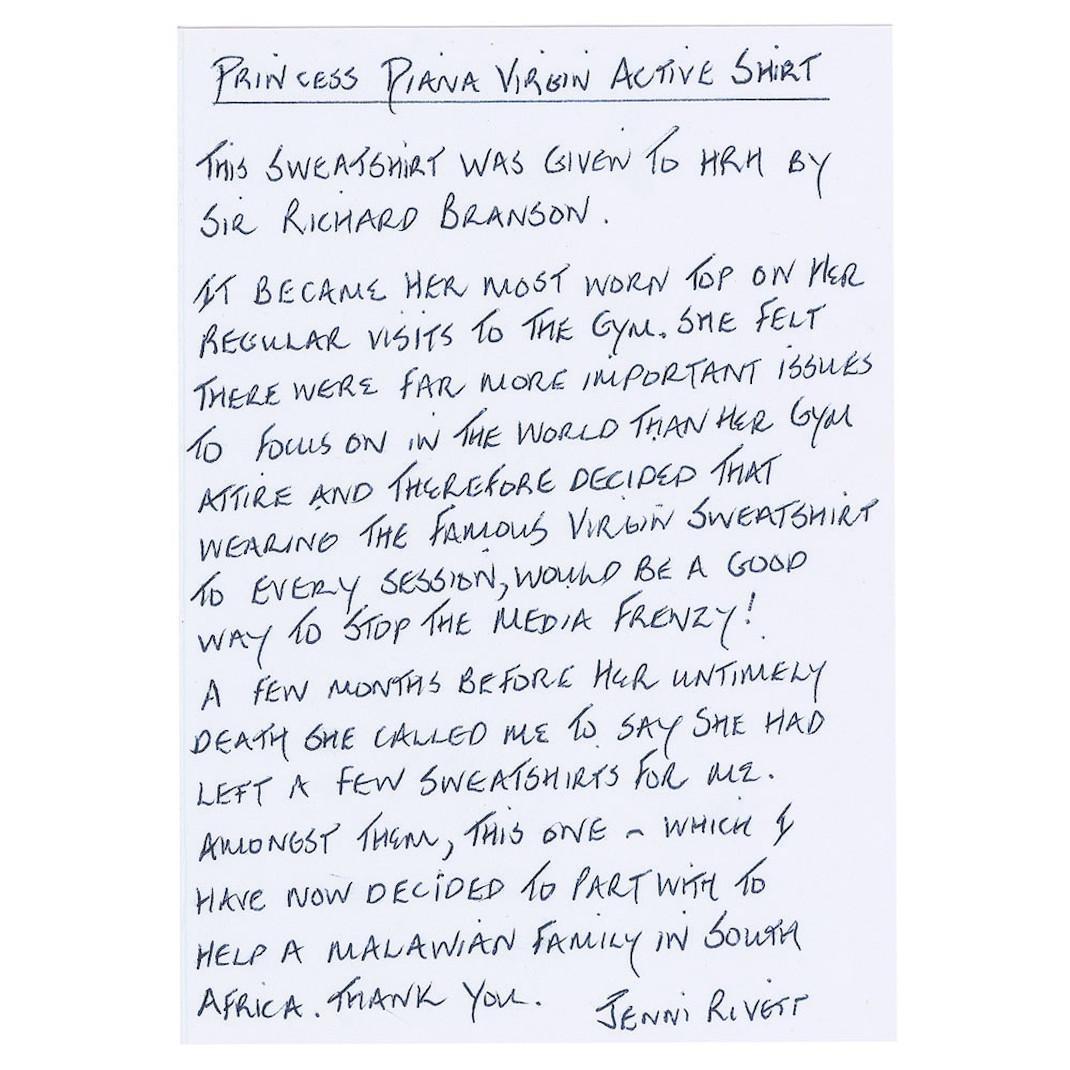 PRINCESS DIANA VIRGIN ACTIVE SHIRT
THIS SWEATSHIRT WAS GIVEN TO HRH BY
SIR RICHARD BRANSON.
IT BECAME HER MOST WORN TOP ON HER
REGULAR VISITS TO THE GYM. SHE FELT
THERE WERE FAR MORE IMPORTANT ISSUES
TO FOCUS ON IN THE WORLD THAN HER GYM
ATTIRE AND THEREFORE DECIDED THAT
WEARING THE FAMOUS VIRGIN SWEATSHIRT
TO EVERY SESSION, WOULD BE A GOOD
WAY TO STOP THE MEDIA FRENZY!
A FEW MONTHS BEFORE HER UNTIMELY
DEATH SHE CALLED ME TO SAY SHE HAD
LEFT A FEW SWEATSHIRTS FOR ME.
AMONGST THEM, THIS ONE - WHICH I
HAVE NOW DECIDED TO PART WITH TO
HELP A MALAWIAN FAMILY IN SOUTH
AFRICA. THANK YOU. JENNI RIVETT